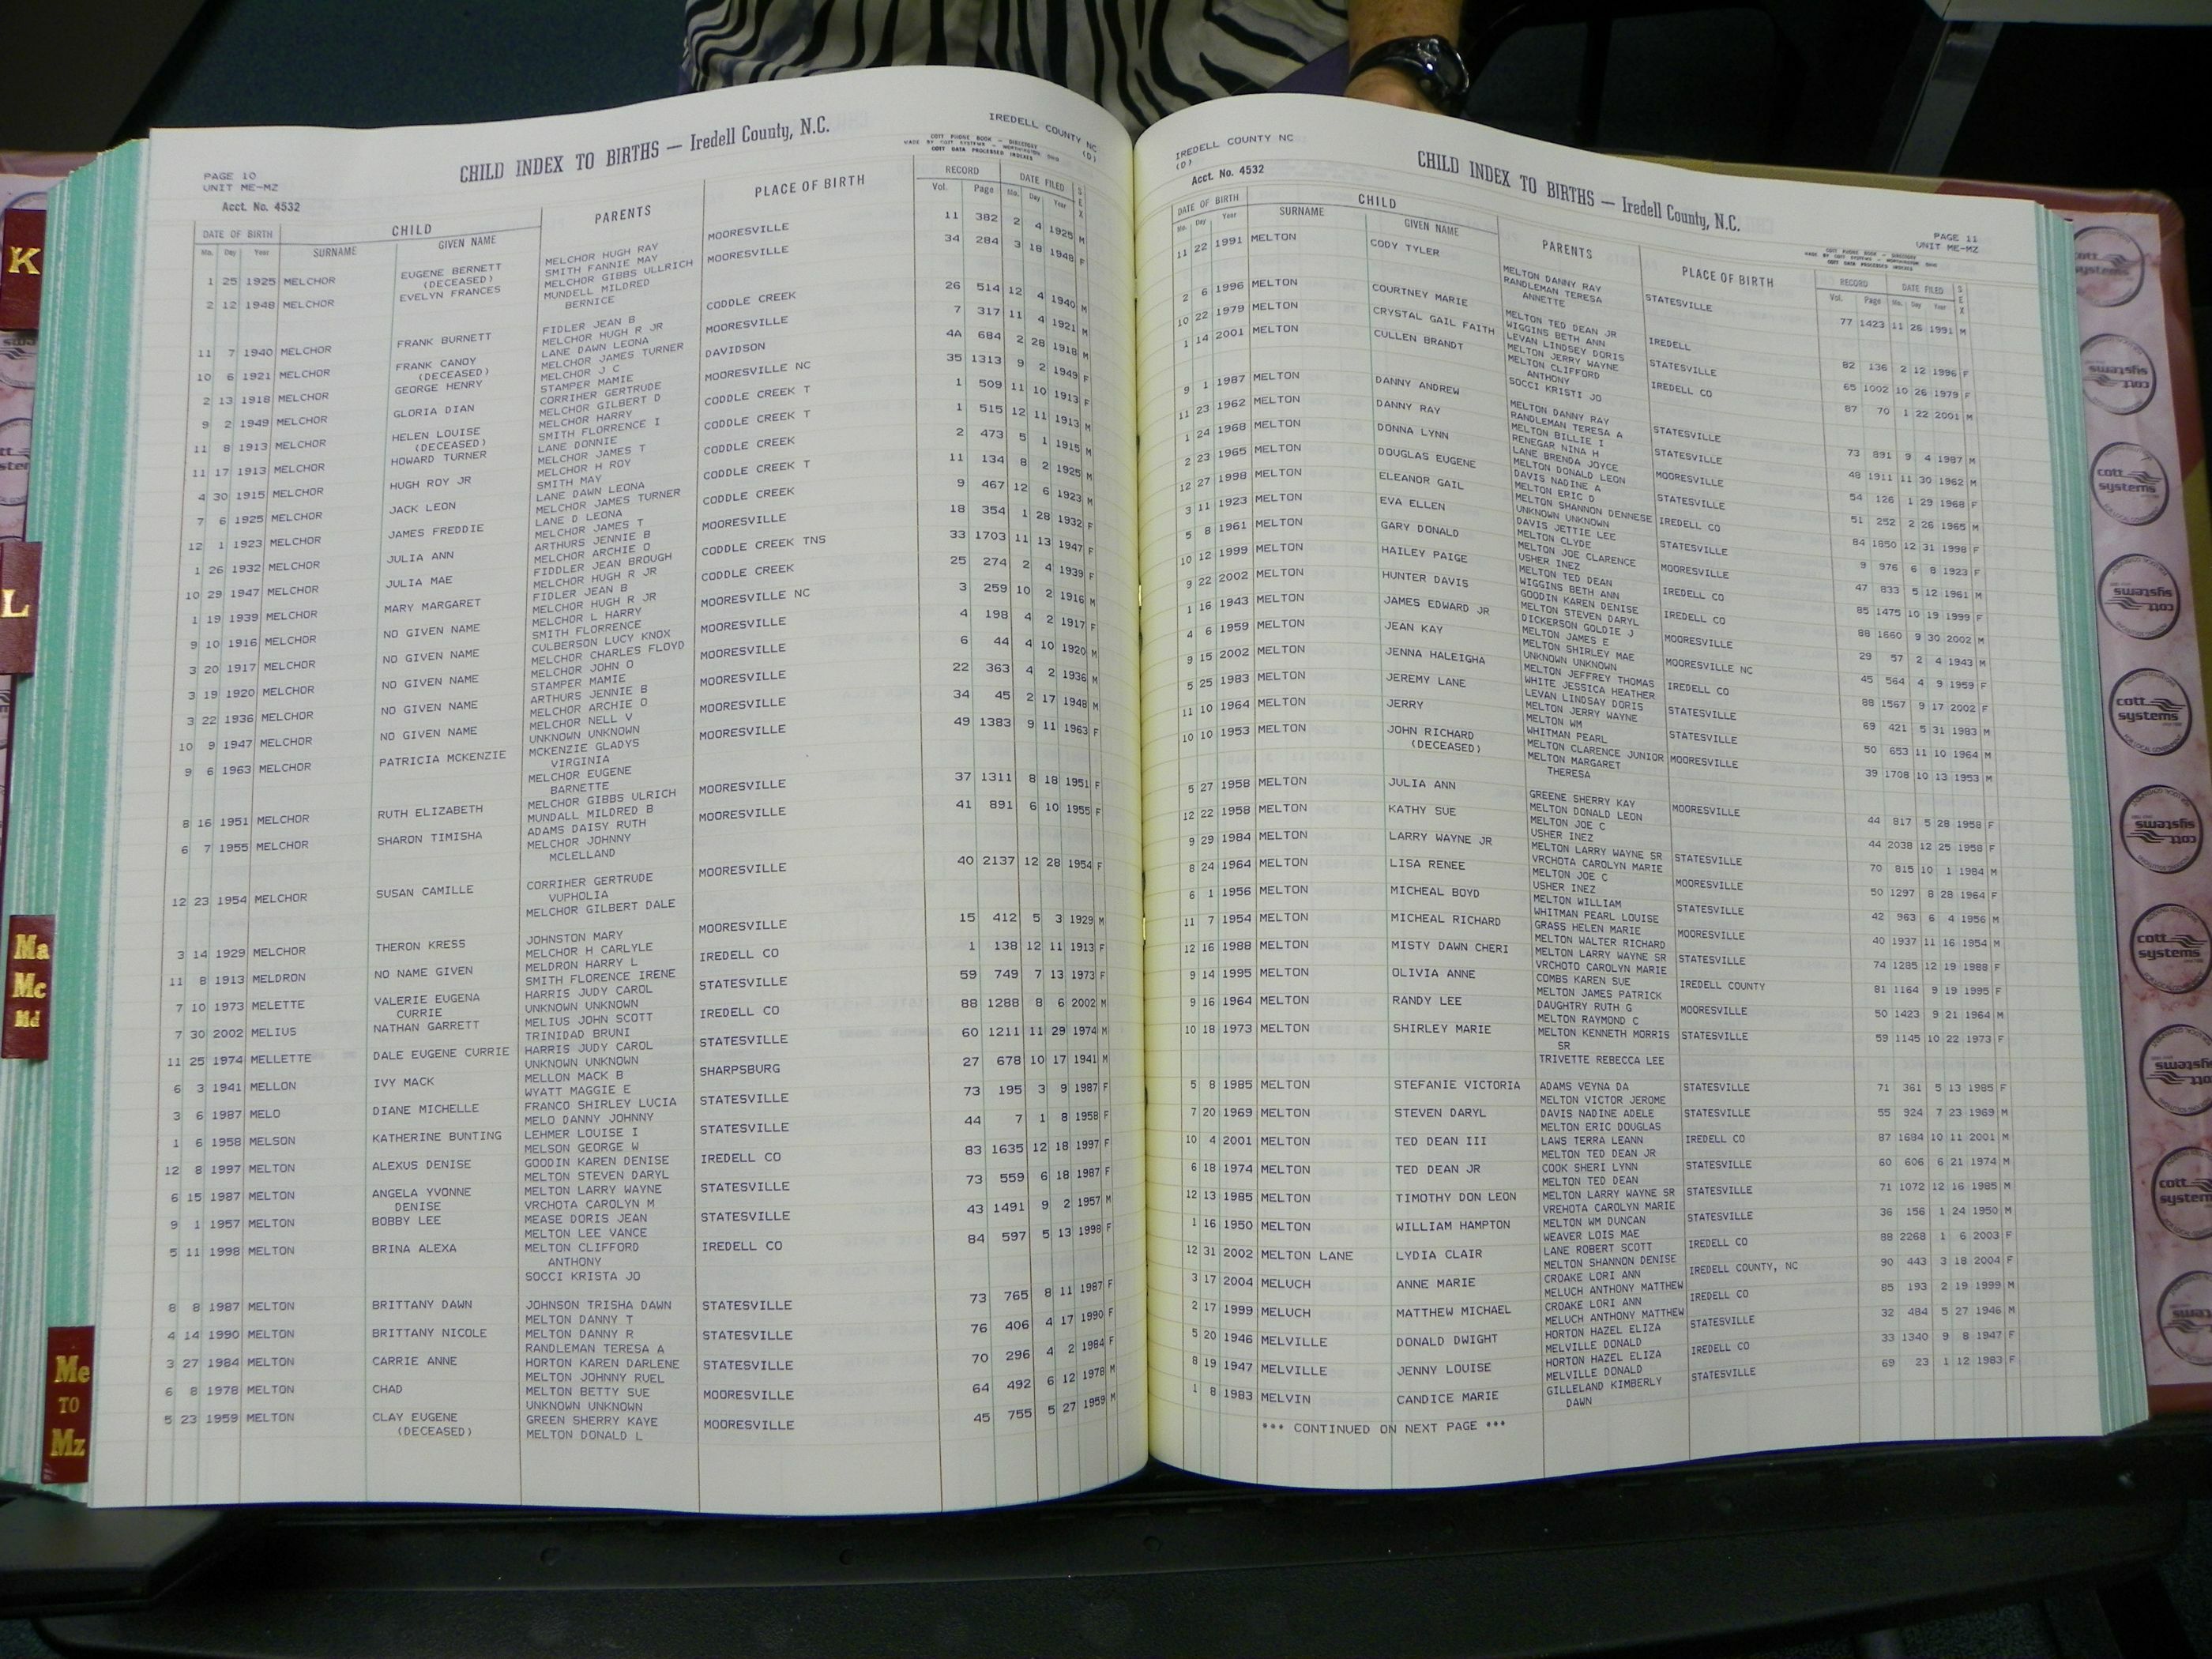 K
L
Ma
Mc
Md
Me
TO
Mz
PAGE 10
UNIT ME-MZ
Acct. No. 4532
CHILD INDEX TO BIRTHS — Iredell County, N.C.
IREDELL COUNTY NC
(D)
DATE OF BIRTH CHILD PARENTS PLACE OF BIRTH RECORD DATE FILED SEX
Mo. Day Year SURNAME GIVEN NAME Vol. Page Mo. Day Year
1 25 1925 MELCHOR EUGENE BERNETT MELCHOR HUGH RAY MOORESVILLE 11 382 2 4 1925 M
(DECEASED) SMITH FANNIE MAY
2 12 1948 MELCHOR EVELYN FRANCES MELCHOR GIBBS ULLRICH MOORESVILLE 34 284 3 18 1948 F
MUNDELL MILDRED
BERNICE
11 7 1940 MELCHOR FRANK BURNETT FIDLER JEAN B CODDLE CREEK 26 514 12 4 1940 M
MELCHOR HUGH R JR
10 6 1921 MELCHOR FRANK CANOY LANE DAWN LEONA MOORESVILLE 7 317 11 4 1921 M
(DECEASED) MELCHOR JAMES TURNER
2 13 1918 MELCHOR GEORGE HENRY MELCHOR J C DAVIDSON 4A 684 2 28 1918 M
STAMPER MAMIE
9 2 1949 MELCHOR GLORIA DIAN CORRIHER GERTRUDE MOORESVILLE NC 35 1313 9 2 1949 F
MELCHOR GILBERT D
11 8 1913 MELCHOR HELEN LOUISE MELCHOR HARRY CODDLE CREEK T 1 509 11 10 1913 F
(DECEASED) SMITH FLORRENCE I
11 17 1913 MELCHOR HOWARD TURNER LANE DONNIE CODDLE CREEK T 1 515 12 11 1913 M
MELCHOR JAMES T
4 30 1915 MELCHOR HUGH ROY JR MELCHOR H ROY CODDLE CREEK 2 473 5 1 1915 M
SMITH MAY
7 6 1925 MELCHOR JACK LEON LANE DAWN LEONA CODDLE CREEK T 11 134 8 2 1925 M
MELCHOR JAMES TURNER
12 1 1923 MELCHOR JAMES FREDDIE LANE D LEONA CODDLE CREEK 9 467 12 6 1923 M
MELCHOR JAMES T
1 26 1932 MELCHOR JULIA ANN ARTHURS JENNIE B MOORESVILLE 18 354 1 28 1932 F
MELCHOR ARCHIE O
10 29 1947 MELCHOR JULIA MAE FIDDLER JEAN BROUGH CODDLE CREEK TNS 33 1703 11 13 1947 F
MELCHOR HUGH R JR
1 19 1939 MELCHOR MARY MARGARET FIDLER JEAN B CODDLE CREEK 25 274 2 4 1939 F
MELCHOR HUGH R JR
9 10 1916 MELCHOR NO GIVEN NAME MELCHOR L HARRY MOORESVILLE NC 3 259 10 2 1916 M
SMITH FLORRENCE
3 20 1917 MELCHOR NO GIVEN NAME CULBERSON LUCY KNOX MOORESVILLE 4 198 4 2 1917 F
MELCHOR CHARLES FLOYD
3 19 1920 MELCHOR NO GIVEN NAME MELCHOR JOHN O MOORESVILLE 6 44 4 10 1920 M
STAMPER MAMIE
3 22 1936 MELCHOR NO GIVEN NAME ARTHURS JENNIE B MOORESVILLE 22 363 4 2 1936 M
MELCHOR ARCHIE O
10 9 1947 MELCHOR NO GIVEN NAME MELCHOR NELL V MOORESVILLE 34 45 2 17 1948 M
UNKNOWN UNKNOWN
9 6 1963 MELCHOR PATRICIA MCKENZIE MCKENZIE GLADYS MOORESVILLE 49 1383 9 11 1963 F
VIRGINIA
MELCHOR EUGENE
BARNETTE
8 16 1951 MELCHOR RUTH ELIZABETH MELCHOR GIBBS ULRICH MOORESVILLE 37 1311 8 18 1951 F
MUNDALL MILDRED B
6 7 1955 MELCHOR SHARON TIMISHA ADAMS DAISY RUTH MOORESVILLE 41 891 6 10 1955 F
MELCHOR JOHNNY
MCLELLAND
12 23 1954 MELCHOR SUSAN CAMILLE CORRIHER GERTRUDE MOORESVILLE 40 2137 12 28 1954 F
VUPHOLIA
MELCHOR GILBERT DALE
3 14 1929 MELCHOR THERON KRESS JOHNSTON MARY MOORESVILLE 15 412 5 3 1929 M
MELCHOR H CARLYLE
11 8 1913 MELDRON NO NAME GIVEN MELDRON HARRY L IREDELL CO 1 138 12 11 1913 F
SMITH FLORENCE IRENE
7 10 1973 MELETTE VALERIE EUGENA HARRIS JUDY CAROL STATESVILLE 59 749 7 13 1973 F
CURRIE UNKNOWN UNKNOWN
7 30 2002 MELIUS NATHAN GARRETT MELIUS JOHN SCOTT IREDELL CO 88 1288 8 6 2002 M
TRINIDAD BRUNI
11 25 1974 MELLETTE DALE EUGENE CURRIE HARRIS JUDY CAROL STATESVILLE 60 1211 11 29 1974 M
UNKNOWN UNKNOWN
6 3 1941 MELLON IVY MACK MELLON MACK B SHARPSBURG 27 678 10 17 1941 M
WYATT MAGGIE E
3 6 1987 MELO DIANE MICHELLE FRANCO SHIRLEY LUCIA STATESVILLE 73 195 3 9 1987 F
MELO DANNY JOHNNY
1 6 1958 MELSON KATHERINE BUNTING LEHMER LOUISE I STATESVILLE 44 7 1 8 1958 F
MELSON GEORGE W
12 8 1997 MELTON ALEXUS DENISE GOODIN KAREN DENISE IREDELL CO 83 1635 12 18 1997 F
MELTON STEVEN DARYL
6 15 1987 MELTON ANGELA YVONNE MELTON LARRY WAYNE STATESVILLE 73 559 6 18 1987 F
DENISE VRCHOTA CAROLYN M
9 1 1957 MELTON BOBBY LEE MEASE DORIS JEAN STATESVILLE 43 1491 9 2 1957 M
MELTON LEE VANCE
5 11 1998 MELTON BRINA ALEXA MELTON CLIFFORD IREDELL CO 84 597 5 13 1998 F
ANTHONY
SOCCI KRISTA JO
8 8 1987 MELTON BRITTANY DAWN JOHNSON TRISHA DAWN STATESVILLE 73 765 8 11 1987 F
MELTON DANNY T
4 14 1990 MELTON BRITTANY NICOLE MELTON DANNY R STATESVILLE 76 406 4 17 1990 F
RANDLEMAN TERESA A
3 27 1984 MELTON CARRIE ANNE HORTON KAREN DARLENE STATESVILLE 70 296 4 2 1984 F
MELTON JOHNNY RUEL
6 8 1978 MELTON CHAD MELTON BETTY SUE MOORESVILLE 64 492 6 12 1978 M
UNKNOWN UNKNOWN
5 23 1959 MELTON CLAY EUGENE GREEN SHERRY KAYE MOORESVILLE 45 755 5 27 1959 M
(DECEASED) MELTON DONALD L
IREDELL COUNTY NC
(D)
Acct. No. 4532
CHILD INDEX TO BIRTHS — Iredell County, N.C.
PAGE 11
UNIT ME-MZ
DATE OF BIRTH CHILD PARENTS PLACE OF BIRTH RECORD DATE FILED SEX
Mo. Day Year SURNAME GIVEN NAME Vol. Page Mo. Day Year
11 22 1991 MELTON CODY TYLER MELTON DANNY RAY STATESVILLE 77 1423 11 26 1991 M
RANDLEMAN TERESA
ANNETTE
2 6 1996 MELTON COURTNEY MARIE MELTON TED DEAN JR IREDELL 82 136 2 12 1996 F
WIGGINS BETH ANN
10 22 1979 MELTON CRYSTAL GAIL FAITH LEVAN LINDSEY DORIS STATESVILLE 65 1002 10 26 1979 F
MELTON JERRY WAYNE
1 14 2001 MELTON CULLEN BRANDT MELTON CLIFFORD IREDELL CO 87 70 1 22 2001 M
ANTHONY
SOCCI KRISTI JO
9 1 1987 MELTON DANNY ANDREW MELTON DANNY RAY STATESVILLE 73 891 9 4 1987 M
RANDLEMAN TERESA A
11 23 1962 MELTON DANNY RAY MELTON BILLIE I STATESVILLE 48 1911 11 30 1962 M
RENEGAR NINA H
1 24 1968 MELTON DONNA LYNN LANE BRENDA JOYCE MOORESVILLE 54 126 1 29 1968 F
MELTON DONALD LEON
2 23 1965 MELTON DOUGLAS EUGENE DAVIS NADINE A STATESVILLE 51 252 2 26 1965 M
MELTON ERIC D
12 27 1998 MELTON ELEANOR GAIL MELTON SHANNON DENNESE IREDELL CO 84 1850 12 31 1998 F
UNKNOWN UNKNOWN
3 11 1923 MELTON EVA ELLEN DAVIS JETTIE LEE STATESVILLE 9 976 6 8 1923 F
MELTON CLYDE
5 8 1961 MELTON GARY DONALD MELTON JOE CLARENCE MOORESVILLE 47 833 5 12 1961 M
USHER INEZ
10 12 1999 MELTON HAILEY PAIGE MELTON TED DEAN IREDELL CO 85 1475 10 19 1999 F
WIGGINS BETH ANN
9 22 2002 MELTON HUNTER DAVIS GOODIN KAREN DENISE IREDELL CO 88 1660 9 30 2002 M
MELTON STEVEN DARYL
1 16 1943 MELTON JAMES EDWARD JR DICKERSON GOLDIE J MOORESVILLE 29 57 2 4 1943 M
MELTON JAMES E
4 6 1959 MELTON JEAN KAY MELTON SHIRLEY MAE MOORESVILLE NC 45 564 4 9 1959 F
UNKNOWN UNKNOWN
9 15 2002 MELTON JENNA HALEIGHA MELTON JEFFREY THOMAS IREDELL CO 88 1567 9 17 2002 F
WHITE JESSICA HEATHER
5 25 1983 MELTON JEREMY LANE LEVAN LINDSAY DORIS STATESVILLE 69 421 5 31 1983 M
MELTON JERRY WAYNE
11 10 1964 MELTON JERRY MELTON WM STATESVILLE 50 653 11 10 1964 M
WHITMAN PEARL
10 10 1953 MELTON JOHN RICHARD MELTON CLARENCE JUNIOR MOORESVILLE 39 1708 10 13 1953 M
(DECEASED) MELTON MARGARET
THERESA
5 27 1958 MELTON JULIA ANN GREENE SHERRY KAY MOORESVILLE 44 817 5 28 1958 F
MELTON DONALD LEON
12 22 1958 MELTON KATHY SUE MELTON JOE C 44 2038 12 25 1958 F
USHER INEZ
9 29 1984 MELTON LARRY WAYNE JR MELTON LARRY WAYNE SR STATESVILLE 70 815 10 1 1984 M
VRCHOTA CAROLYN MARIE
8 24 1964 MELTON LISA RENEE MELTON JOE C MOORESVILLE 50 1297 8 28 1964 F
USHER INEZ
6 1 1956 MELTON MICHEAL BOYD MELTON WILLIAM STATESVILLE 42 963 6 4 1956 M
WHITMAN PEARL LOUISE
11 7 1954 MELTON MICHEAL RICHARD GRASS HELEN MARIE MOORESVILLE 40 1937 11 16 1954 M
MELTON WALTER RICHARD
12 16 1988 MELTON MISTY DAWN CHERI MELTON LARRY WAYNE SR STATESVILLE 74 1285 12 19 1988 F
VRCHOTO CAROLYN MARIE
9 14 1995 MELTON OLIVIA ANNE COMBS KAREN SUE IREDELL COUNTY 81 1164 9 19 1995 F
MELTON JAMES PATRICK
9 16 1964 MELTON RANDY LEE DAUGHTRY RUTH G MOORESVILLE 50 1423 9 21 1964 M
MELTON RAYMOND C
10 18 1973 MELTON SHIRLEY MARIE MELTON KENNETH MORRIS STATESVILLE 59 1145 10 22 1973 F
SR
TRIVETTE REBECCA LEE
5 8 1985 MELTON STEFANIE VICTORIA ADAMS VEYNA DA STATESVILLE 71 361 5 13 1985 F
MELTON VICTOR JEROME
7 20 1969 MELTON STEVEN DARYL DAVIS NADINE ADELE STATESVILLE 55 924 7 23 1969 M
MELTON ERIC DOUGLAS
10 4 2001 MELTON TED DEAN III LAWS TERRA LEANN IREDELL CO 87 1684 10 11 2001 M
MELTON TED DEAN JR
6 18 1974 MELTON TED DEAN JR COOK SHERI LYNN STATESVILLE 60 606 6 21 1974 M
MELTON TED DEAN
12 13 1985 MELTON TIMOTHY DON LEON MELTON LARRY WAYNE SR STATESVILLE 71 1072 12 16 1985 M
VREHOTA CAROLYN MARIE
1 16 1950 MELTON WILLIAM HAMPTON MELTON WM DUNCAN STATESVILLE 36 156 1 24 1950 M
WEAVER LOIS MAE
12 31 2002 MELTON LANE LYDIA CLAIR LANE ROBERT SCOTT IREDELL CO 88 2268 1 6 2003 F
MELTON SHANNON DENISE
3 17 2004 MELUCH ANNE MARIE CROAKE LORI ANN IREDELL COUNTY, NC 90 443 3 18 2004 F
MELUCH ANTHONY MATTHEW
2 17 1999 MELUCH MATTHEW MICHAEL CROAKE LORI ANN IREDELL CO 85 193 2 19 1999 M
MELUCH ANTHONY MATTHEW
5 20 1946 MELVILLE DONALD DWIGHT HORTON HAZEL ELIZA STATESVILLE 32 484 5 27 1946 M
MELVILLE DONALD
8 19 1947 MELVILLE JENNY LOUISE HORTON HAZEL ELIZA IREDELL CO 33 1340 9 8 1947 F
MELVILLE DONALD
1 8 1983 MELVIN CANDICE MARIE GILLELAND KIMBERLY STATESVILLE 69 23 1 12 1983 F
DAWN
*** CONTINUED ON NEXT PAGE ***
cott
systems
cott
systems
cott
systems